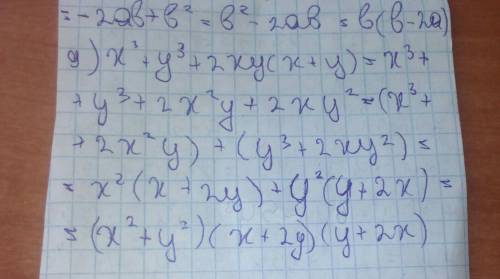 = -2ab + b² = b² - 2ab = b(b-2a)
g) x³ + y³ + 2xy(x+y) = x³ +
+ y³ + 2x²y + 2xy² = (x³ +
+ 2x²y) + (y³ + 2xy²) =
= x²(x + 2y) + y²(y + 2x) =
= (x² + y²)(x + 2y)(y + 2x)